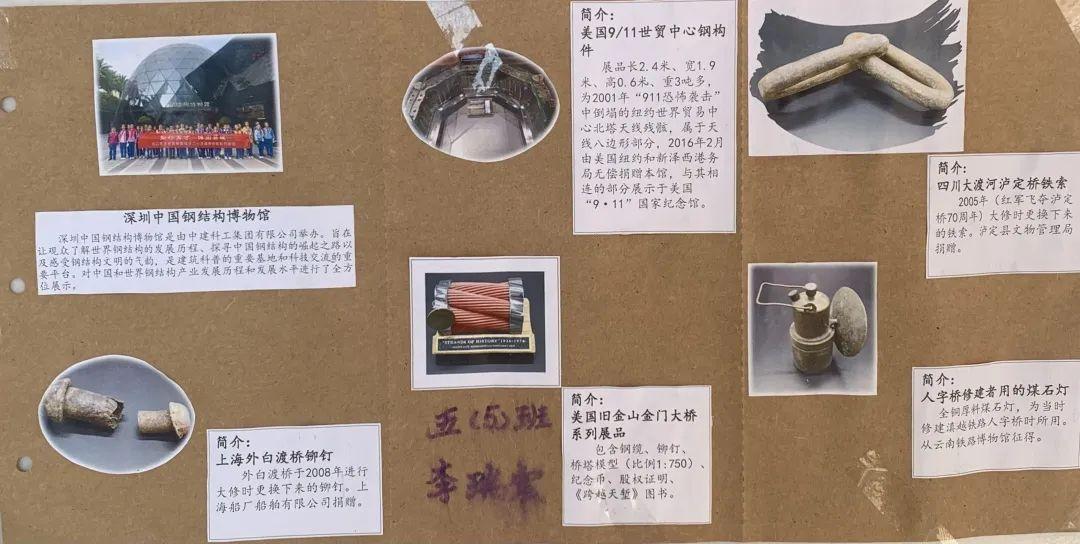 深圳中国钢结构博物馆
深圳中国钢结构博物馆是由中建科工集团有限公司举办。旨在
让观众了解世界钢结构的发展历程、探寻中国钢结构的崛起之路以
及感受钢结构文明的气韵，是建筑科普的重要基地和科技交流的重
要平台。对中国和世界钢结构产业发展历程和发展水平进行了全方
位展示。
简介：
上海外白渡桥铆钉
外白渡桥于2008年进行
大修时更换下来的铆钉。上
海船厂船舶有限公司捐赠。
简介：
美国9/11世贸中心钢构
件
展品长2.4米、宽1.9
米、高0.6米、重3吨多，
为2001年“911恐怖袭击”
中倒塌的纽约世界贸易中
心北塔天线残骸，属于天
线八边形部分，2016年2月
由美国纽约和新泽西港务
局无偿捐赠本馆，与其相
连的部分展示于美国
“9·11”国家纪念馆。
"STRANDS OF HISTORY" 1936-1976
五(5)班
李瑞
简介：
美国旧金山金门大桥
系列展品
包含钢缆、铆钉、
桥塔模型（比例1:750）、
纪念币、股权证明、
《跨越天堑》图书。
简介：
四川大渡河泸定桥铁索
2005年（红军飞夺泸定
桥70周年）大修时更换下来
的铁索。泸定县文物管理局
捐赠。
简介：
人字桥修建者用的煤石灯
全铜厚料煤石灯，为当时
修建滇越铁路人字桥时所用。
从云南铁路博物馆征得。